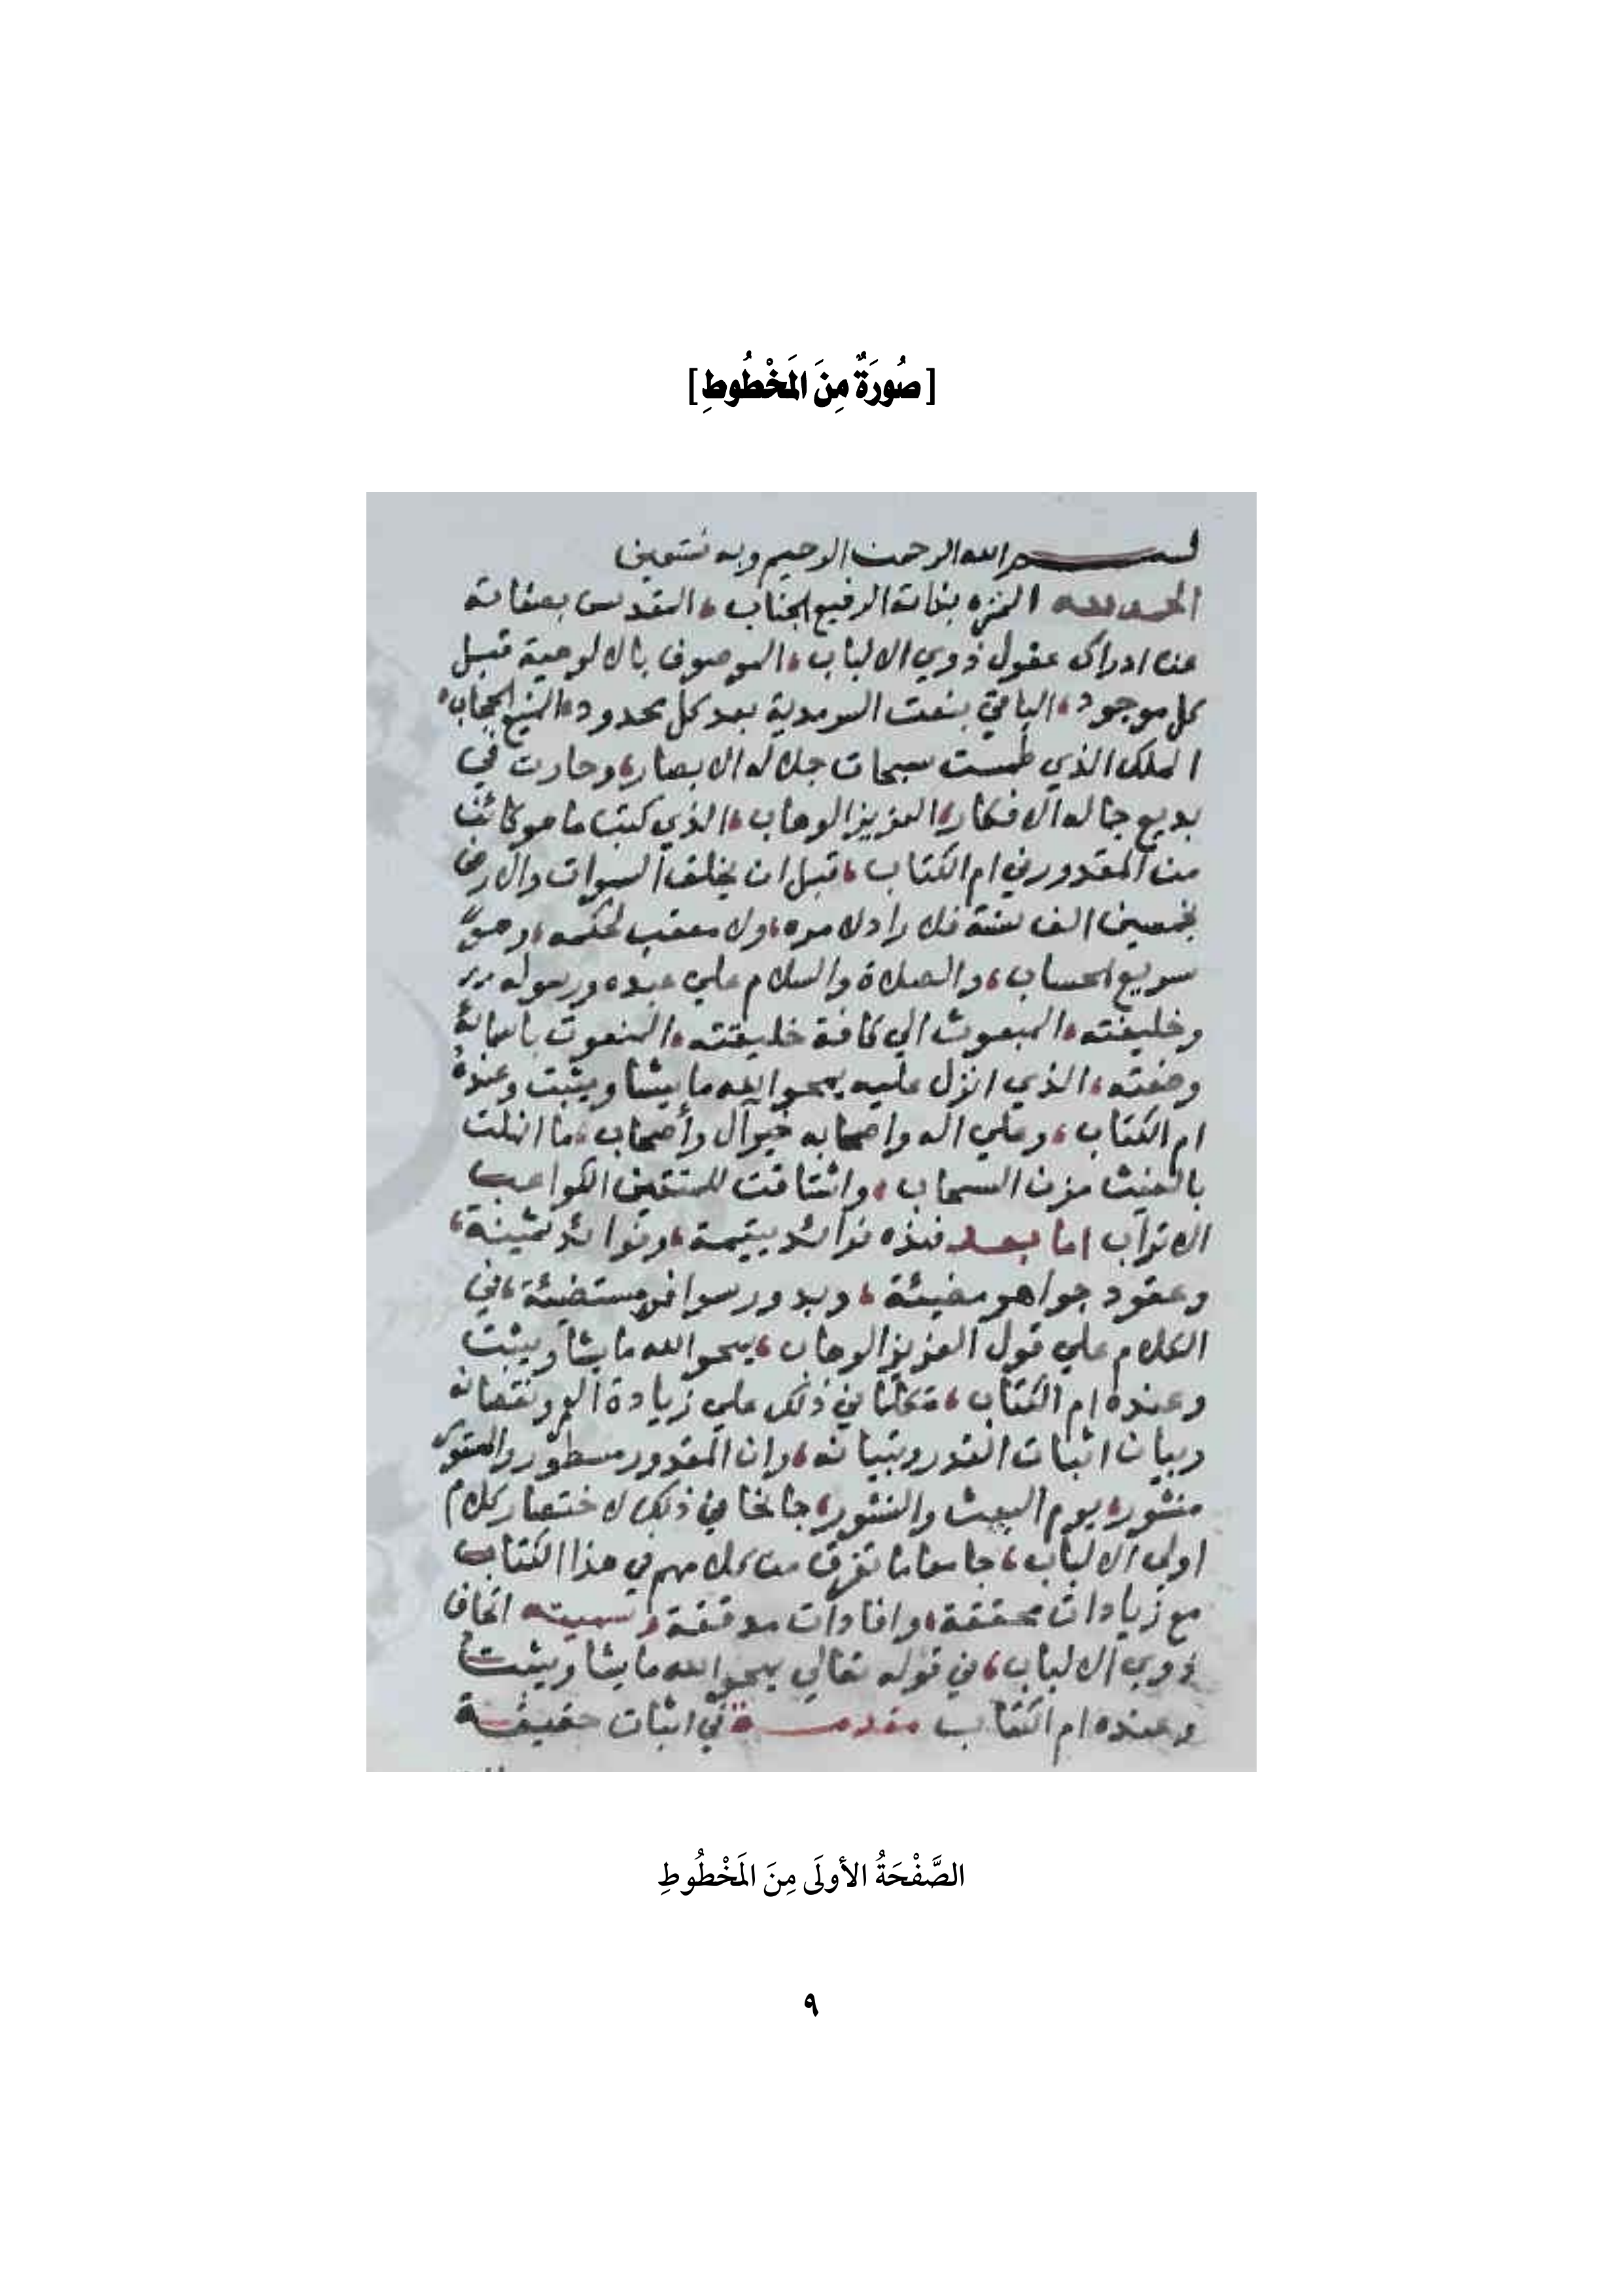 [صُورَةٌ مِنَ المَخْطُوطِ]
بسم الله الرحمن الرحيم وبه نستعين
الحمد لله المنزه بذاته الرفيع الجناب، المقدس بصفاته
عن ادراك عقول ذوي الالباب، الموصوف بالالوهية قبل
كل موجود، الباقي بنعت السرمدية بعد كل محدود، المنيع الحجاب،
الملك الذي طمست سبحات جلاله الابصار، وحارت في
بديع جماله الافكار، العزيز الوهاب، الذي كتب ما هو كائن
من المقدور في ام الكتاب، قبل ان يخلق السموات والارض
بخمسين الف سنة فلا راد لامره، ولا معقب لحكمه، وهو
سريع الحساب، والصلاة والسلام علي عبده ورسوله
وخليفته، المبعوث الي كافة خليقته، المنعوت
وصفته، الذي انزل عليه يمحوا الله ما يشا ويثبت وعنده
ام الكتاب، وعلي اله واصحابه خير آل وأصحاب، ما انهلت
بالغيث مزن السحاب، واشتاقت للمتقين الكواعب
الاتراب اما بعد فهذه فرائد يتيمة، وفوائد ثمينة،
وعقود جواهر مضيئة، وبدور سوافر مستضيئة، في
الكلام علي قول العزيز الوهاب، يمحوا الله ما يشا ويثبت
وعنده ام الكتاب، متكلما في ذلك علي زيادة العمر ونقصانه
وبيان اثبات القدر وتبيانه، وان المقدور مسطور
منشور، يوم البعث والنشور، جانحا في ذلك لاختصار كلام
اولي الالباب، جامعا ما تفرق من كلامهم في هذا الكتاب
مع زيادات محققة، وافادات مدققة، وسميته اتحاف
ذوي الالباب، في قوله تعالي يمحوا الله ما يشا ويثبت
وعنده ام الكتاب مقدمة في اثبات حقيقة
الصَّفْحَةُ الأولَى مِنَ المَخْطُوطِ
٩